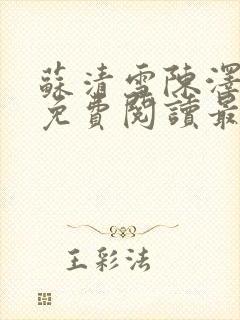 蘇清雪陳澤
免費閱讀最
王彩法